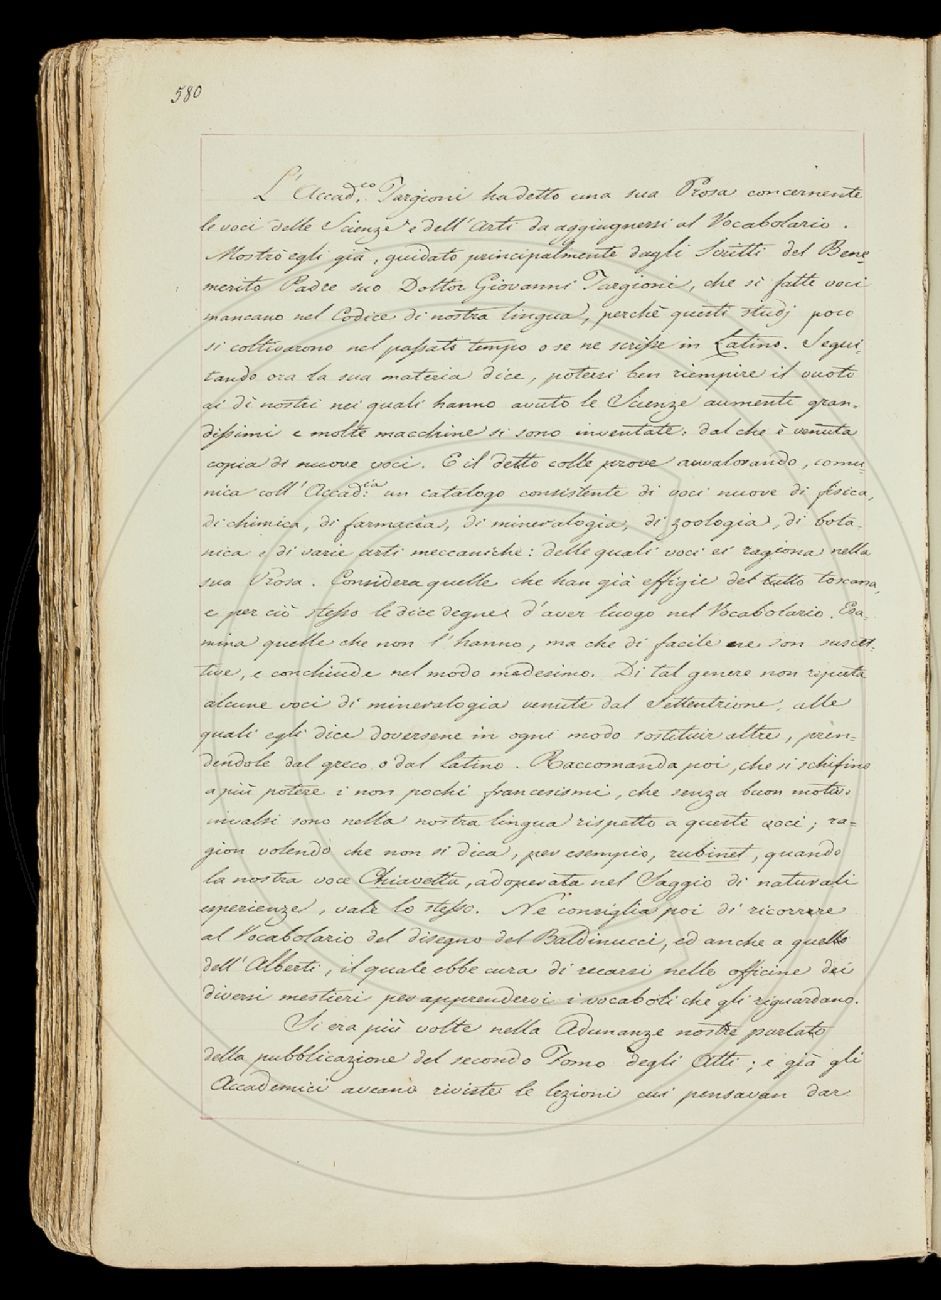 580
L'Accad.co Targioni ha detto una sua Prosa concernente
le voci delle Scienze e dell'Arti da aggiugnersi al Vocabolario.
Mostrò egli già, guidato principalmente dagli Scritti del Bene=
merito Padre suo Dottor Giovanni Targioni, che sì fatte voci
mancano nel Codice di nostra lingua, perchè questi studj poco
si coltivarono nel passato tempo o se ne scrisse in Latino. Segui-
tando ora la sua materia dice, potersi ben riempire il vuoto
ai dì nostri nei quali hanno avuto le Scienze aumenti gran-
dissimi e molte macchine si sono inventate: dal che è venuta
copia di nuove voci. E il detto colle prove avvalorando, comu-
nica coll'Accad:cia un catalogo consistente di voci nuove di fisica,
di chimica, di farmacia, di mineralogia, di zoologia, di bota-
nica e di varie arti meccaniche: delle quali voci ei ragiona nella
sua Prosa. Considera quelle che han già effigie del tutto toscana,
e per ciò stesso le dice degne d'aver luogo nel Vocabolario. Esa-
mina quelle che non l'hanno, ma che di facile ne son suscet-
tive, e conchiude nel modo medesimo. Di tal genere non reputa
alcune voci di mineralogia venute dal Settentrione, alle
quali egli dice doversene in ogni modo sostituir altre, pren-
dendole dal greco o dal latino. Raccomanda poi, che si schifino
a più potere i non pochi francesismi, che senza buon motivo
invalsi sono nella nostra lingua rispetto a queste voci; ra=
gion volendo che non si dica, per esempio, rubinet, quando
la nostra voce Chiavetta, adoperata nel Saggio di naturali
esperienze, vale lo stesso. Nè consiglia poi di ricorrere
al Vocabolario del disegno del Baldinucci, ed anche a quello
dell'Alberti, il quale ebbe cura di recarsi nelle officine dei
diversi mestieri per apprendervi i vocaboli che gli riguardano.
Si era più volte nella Adunanze nostre parlato
della pubblicazione del secondo Tomo degli Atti; e già gli
Accademici aveano riviste le lezioni cui pensavan dar